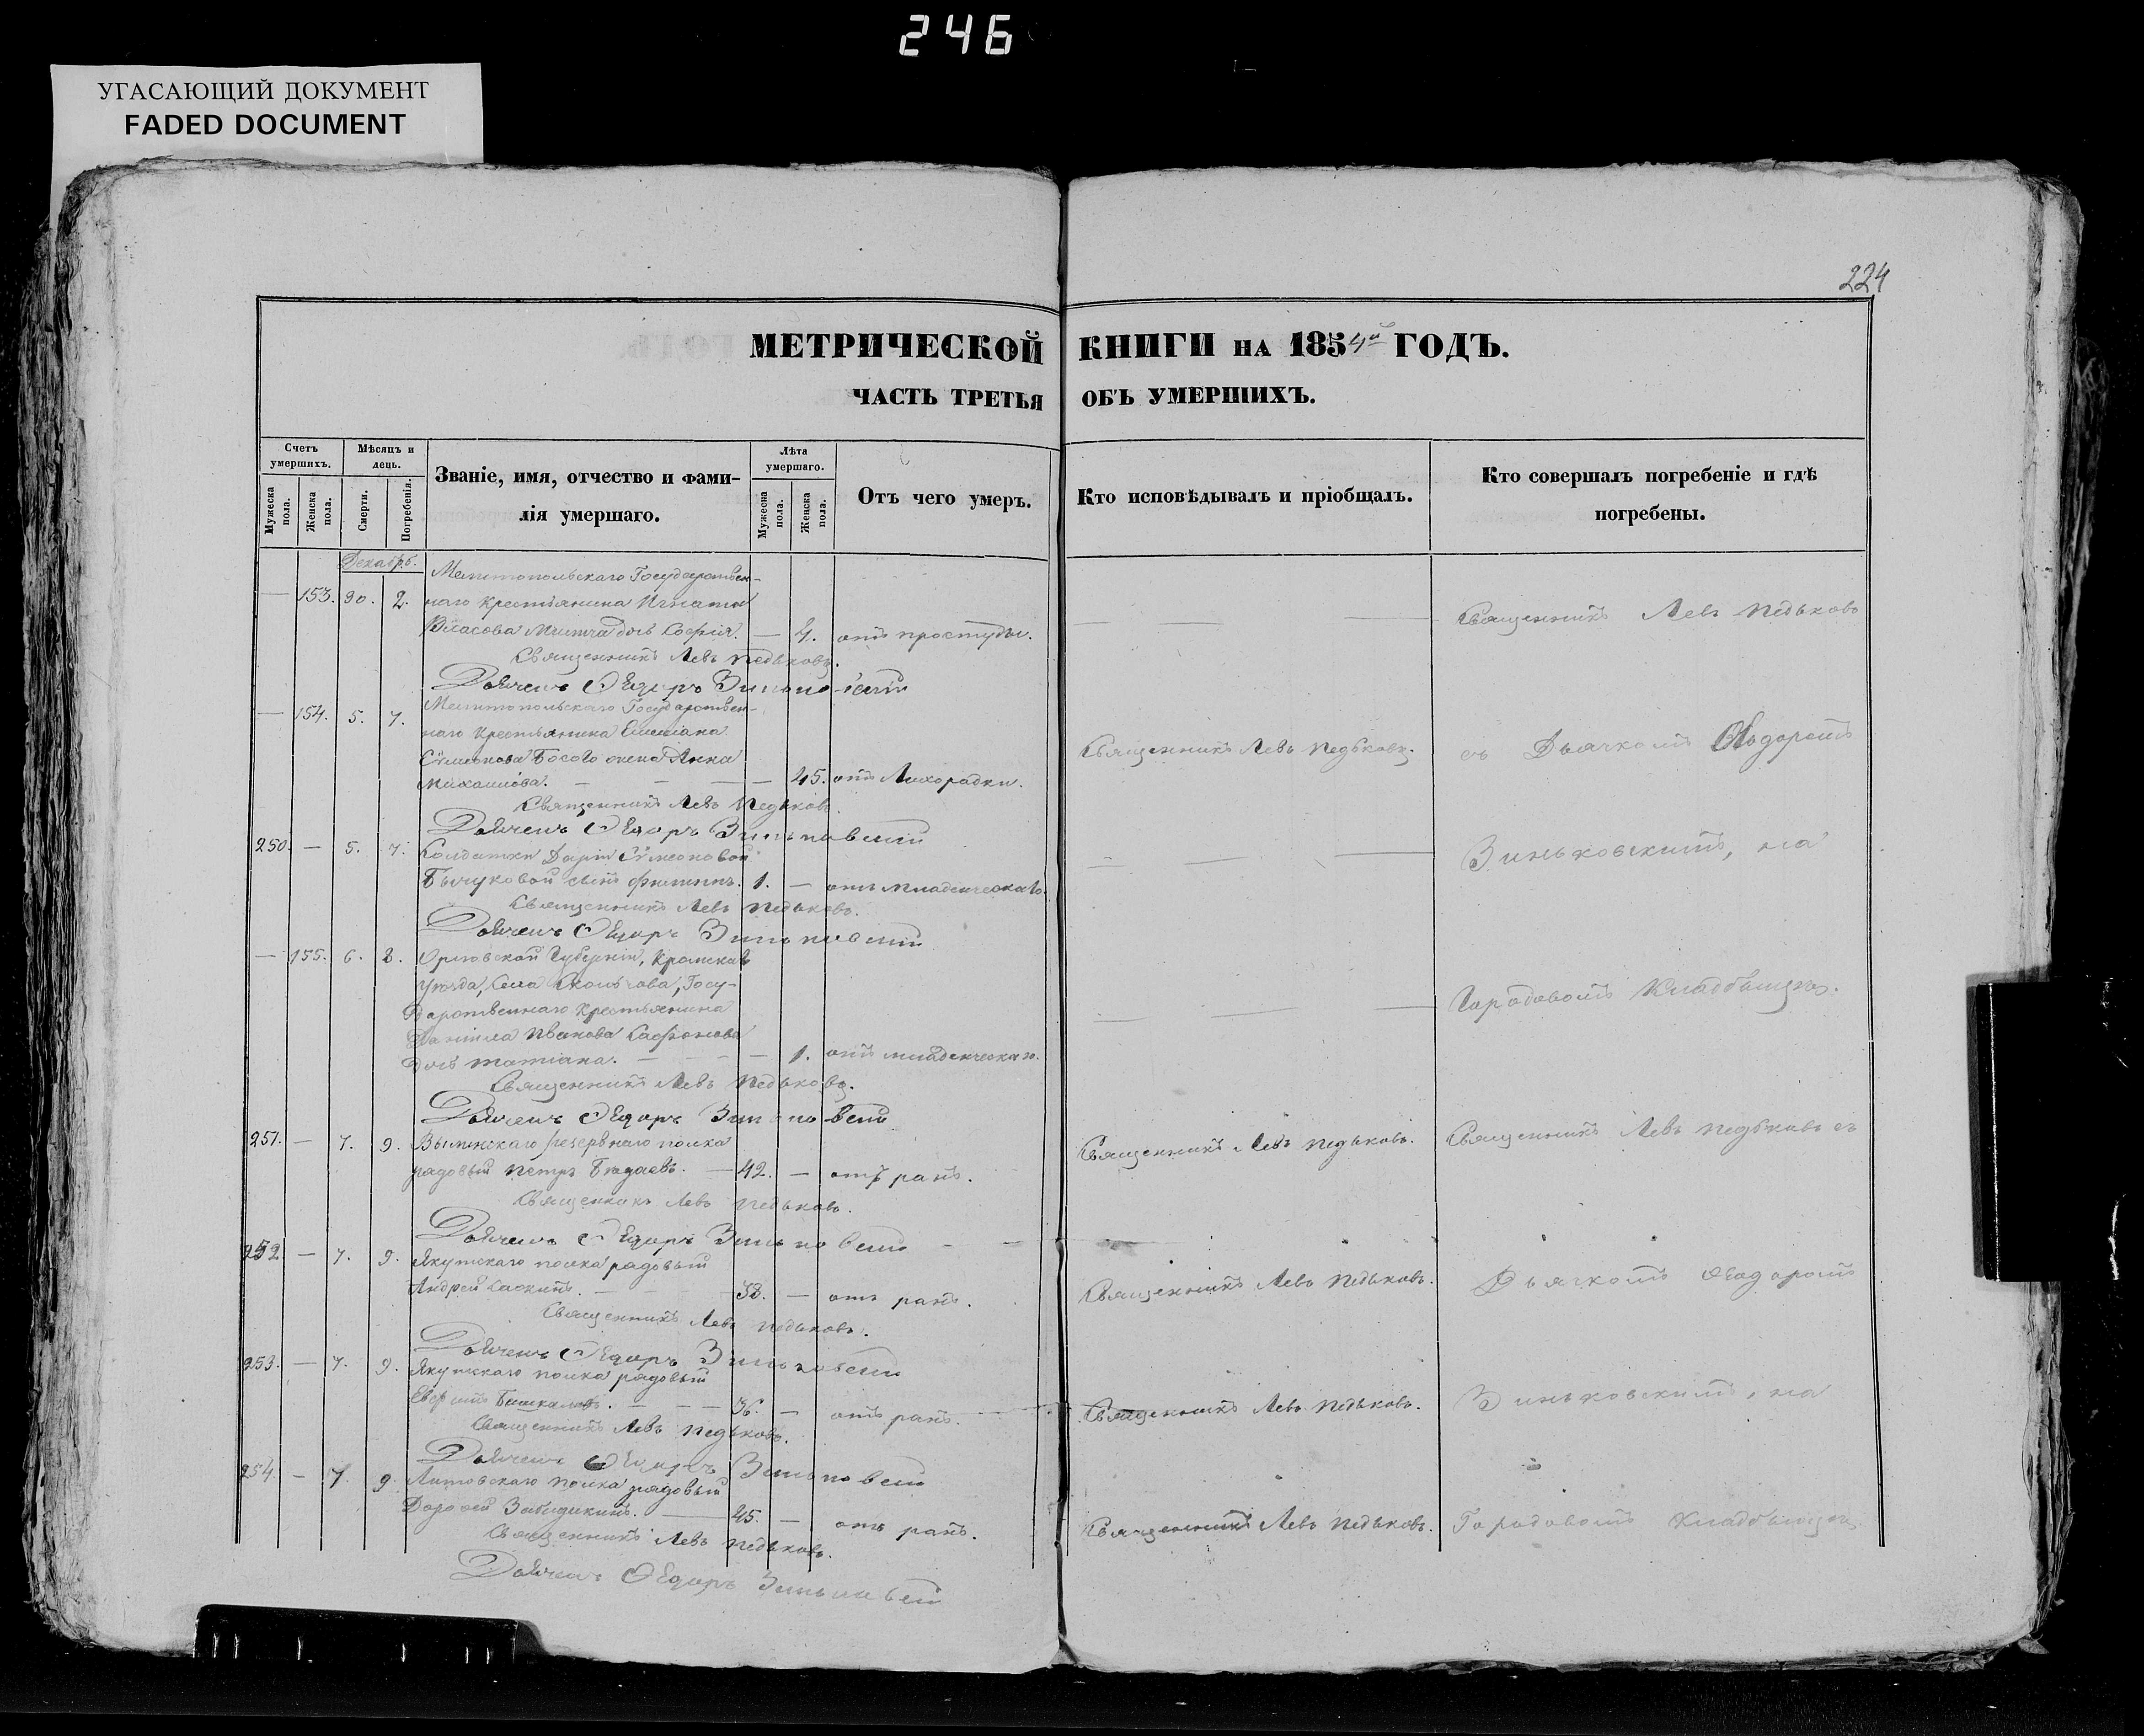 246
УГАСАЮЩИЙ ДОКУМЕНТ
FADED DOCUMENT
224
МЕТРИЧЕСКОЙ КНИГИ НА 1854й ГОДЪ.
ЧАСТЬ ТРЕТЬЯ ОБЪ УМЕРШИХЪ.
Счетъ умершихъ.
Мужеска пола.
Женска пола.
Мѣсяцъ и день.
Смерти.
Погребенія.
Званіе, имя, отчество и фами-
лія умершаго.
Лѣта умершаго.
Мужеска пола.
Женска пола.
Отъ чего умеръ.
Кто исповѣдывалъ и пріобщалъ.
Кто совершалъ погребеніе и гдѣ
погребены.
Декабрь.
Мелитопольскаго Государствен-
— 153. 30. 2. наго крестьянина Игната
Власова дочь Софія. — 4. отъ простуды.
Священникъ Левъ Педьковъ.
Священникъ Левъ Педьковъ
Дьячекъ Ѳедоръ Зиньковскій
Мелитопольскаго Государствен-
— 154. 5. 7. наго крестьянина Емеліана
Сѵмеонова Босаго жена Анна
Михайлова. — 45. отъ лихорадки.
Священникъ Левъ Педьковъ.
Священникъ Левъ Педьковъ.
съ Дьячкомъ Ѳеодоромъ
Дьячекъ Ѳедоръ Зиньковскій
250. — 5. 7. Солдатки Даріи Сѵмеоновой
сынъ Филиппъ. 1. — отъ младенческаго.
Священникъ Левъ Педьковъ.
Зиньковскимъ, на
Дьячекъ Ѳедоръ Зиньковскій
— 155. 6. 8. Орловской Губерніи, Кромскаго
уѣзда, села Госу-
дарственнаго крестьянина
Даніила Иванова Сафонова
дочь Татіана. — 1. отъ младенческаго.
Священникъ Левъ Педьковъ.
Городовомъ Кладбищѣ.
Дьячекъ Ѳедоръ Зиньковскій
251. — 7. 9. резервнаго полка
рядовый Петръ — 42. — отъ ранъ.
Священникъ Левъ Педьковъ.
Священникъ Левъ Педьковъ.
Священникъ Левъ Педьковъ съ
Дьячекъ Ѳедоръ Зиньковскій
252. — 7. 9. Якутскаго полка рядовый
Андрей — 38. — отъ ранъ.
Священникъ Левъ Педьковъ.
Священникъ Левъ Педьковъ.
Дьячкомъ Ѳеодоромъ
Дьячекъ Ѳедоръ Зиньковскій
253. — 7. 9. Якутскаго полка рядовый
— 36. — отъ ранъ.
Священникъ Левъ Педьковъ.
Священникъ Левъ Педьковъ.
Зиньковскимъ, на
Дьячекъ Ѳедоръ Зиньковскій
254. — 7. 9. Литовскаго полка рядовый
Дороѳей — 45. — отъ ранъ.
Священникъ Левъ Педьковъ.
Священникъ Левъ Педьковъ.
Городовомъ Кладбищѣ.
Дьячекъ Ѳедоръ Зиньковскій